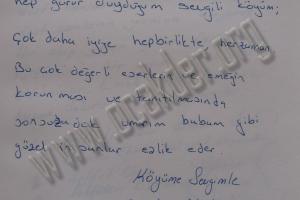 hep gurur duyduğum sevgili köyüm;
Çok daha iyiye hepbirlikte, herzaman
Bu çok değerli eserlerin ve emeğin
korunması ve tanıtılmasında
sonsuza dek umarım babam gibi
güzel insanlar eşlik eder.
Köyüme Sevgimle
www.ocakder.org